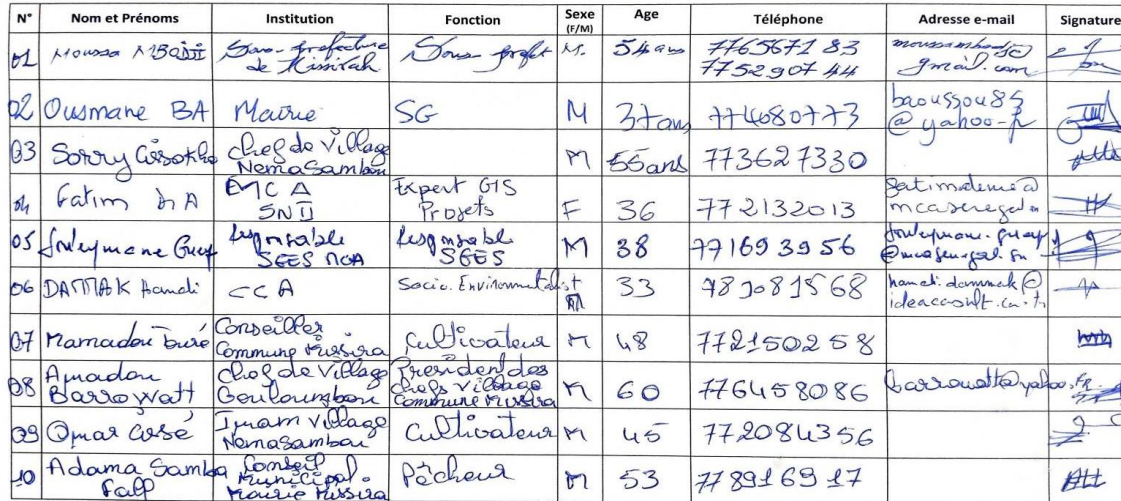 N° Nom et Prénoms Institution Fonction Sexe (F/M) Age Téléphone Adresse e-mail Signature
01 Moussa Sous-prefecture de Missirah Sous-prefet M. 54 ans 776567183 775290744
gmail.com
02 Ousmane BA Mairie SG M 37ans 774080773 baoussou85 @yahoo-fr
03 Sorry Cissokho chef de village Nemasambou M 55ans 773627330
04 Fatim BA MCA SN II Expert GIS Projets F 36 772132013
05 Souleymane Gueye Responsable SGES MCA Responsable SGES M 38 771693956
06 DAMMAK Hamdi CCA Socio. Environnementalist M 33 783081568 hamdi.dammak@
07 Mamadou Conseiller Commune Missira Cultivateur M 48 772150258
08 Amadou Barro Watt chef de village Gouloumbou President des chefs village Commune Missira M 60 776458086
09 Omar Cissé Imam village Nemasambou Cultivateur M 45 772084356
10 Adama Samba Fall Conseil Municipal. Mairie Missira Pêcheur M 53 778916917